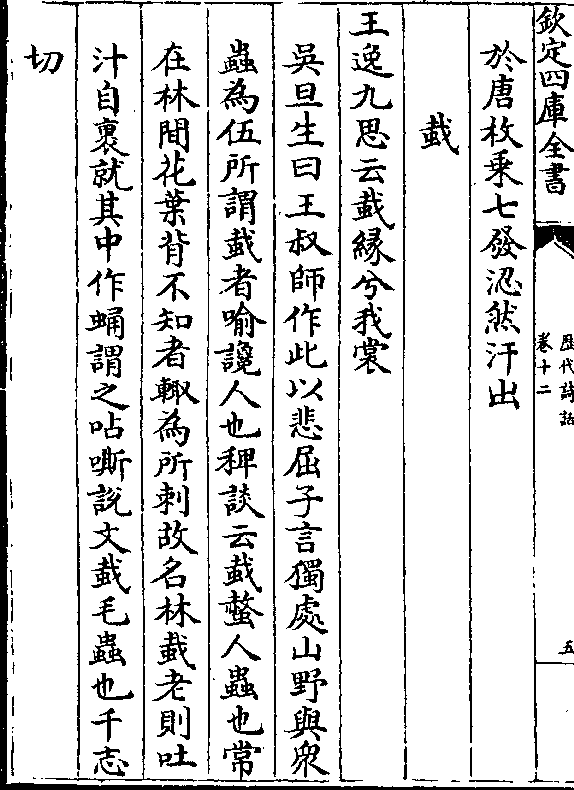 欽定四庫全書
歷代詩話
卷十二
五
於唐枚乗七發涊然汗出
蛓
王逸九思云蛓縁兮我裳
吳旦生曰王叔師作此以悲屈子言獨處山野與衆
蟲為伍所謂蛓者喻讒人也稗談云蛓螫人蟲也常
在林間花葉背不知者輙為所刺故名林蛓老則吐
汁自裹就其中作蛹謂之呫嘶說文蛓毛蟲也千志
切